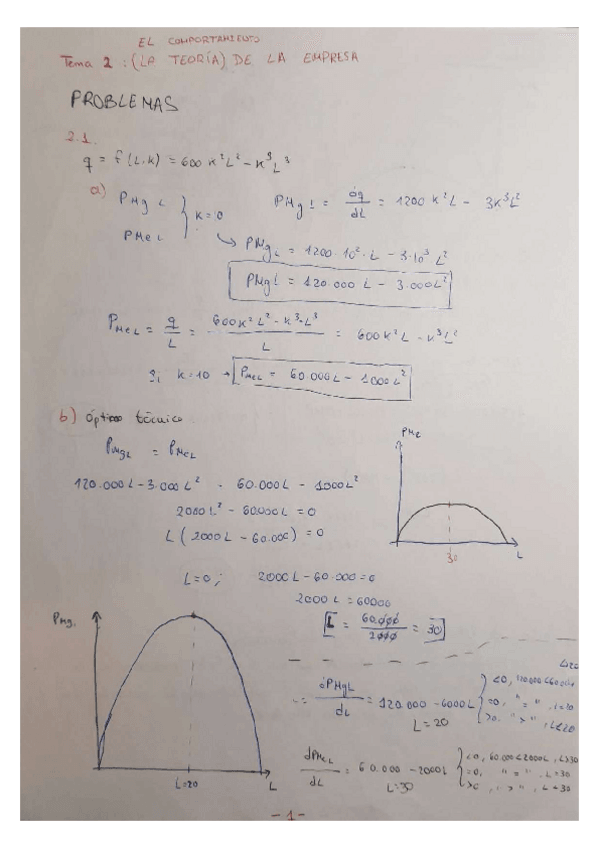 EL COMPORTAMIENTO
Tema 2 : (LA TEORÍA) DE LA EMPRESA
PROBLEMAS
2.1.
q = f(L,K) = 600 K²L² - K³L³
a) PMg L
PMe L
K=0
PMg L = ∂q/∂L = 1200 K²L - 3K³L²
↳ PMg L = 1200·10²·L - 3·10³ L²
PMg L = 120.000 L - 3.000 L²
PMe L = q/L = 600K²L² - K³·L³ / L = 600K²L - K³L²
Si K=10 → PMe L = 60.000L - 1000L²
b) óptimo técnico
PMg L = PMe L
120.000L - 3.000L² = 60.000L - 1000L²
2000L² - 60.000L = 0
L ( 2000L - 60.000) = 0
L=0 ; 2000L - 60.000 = 0
2000L = 60000
L = 60.000/2000 = 30
PMe
30
L
PMg L
L=20
L
∂PMgL/∂L = 120.000 - 6000L
L=20
dPMeL/dL = 60.000 - 2000L
L=30
<0, 60.000<2000L, L>30
=0, " = ", L=30
-1-